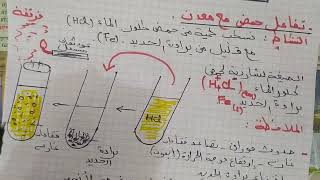 تفاعل حمض مع معدن :
فرقعة
النشاط : نسكب كمية من حمض كلور الماء (Hcl)
مع قليل من برادة الحديد (Fe)
عود ثقاب
مشتعل
الصيغة الشاردية لحمض
كلور الماء (H⁺, Cl⁻)(aq)
برادة الحديد Fe(s)
Hcl
الملاحظة :
برادة
الحديد
- حدوث فوران - تصاعد فقاعات
غازية - ارتفاع درجة الحرارة